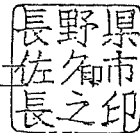 長野県
佐久市
長之印